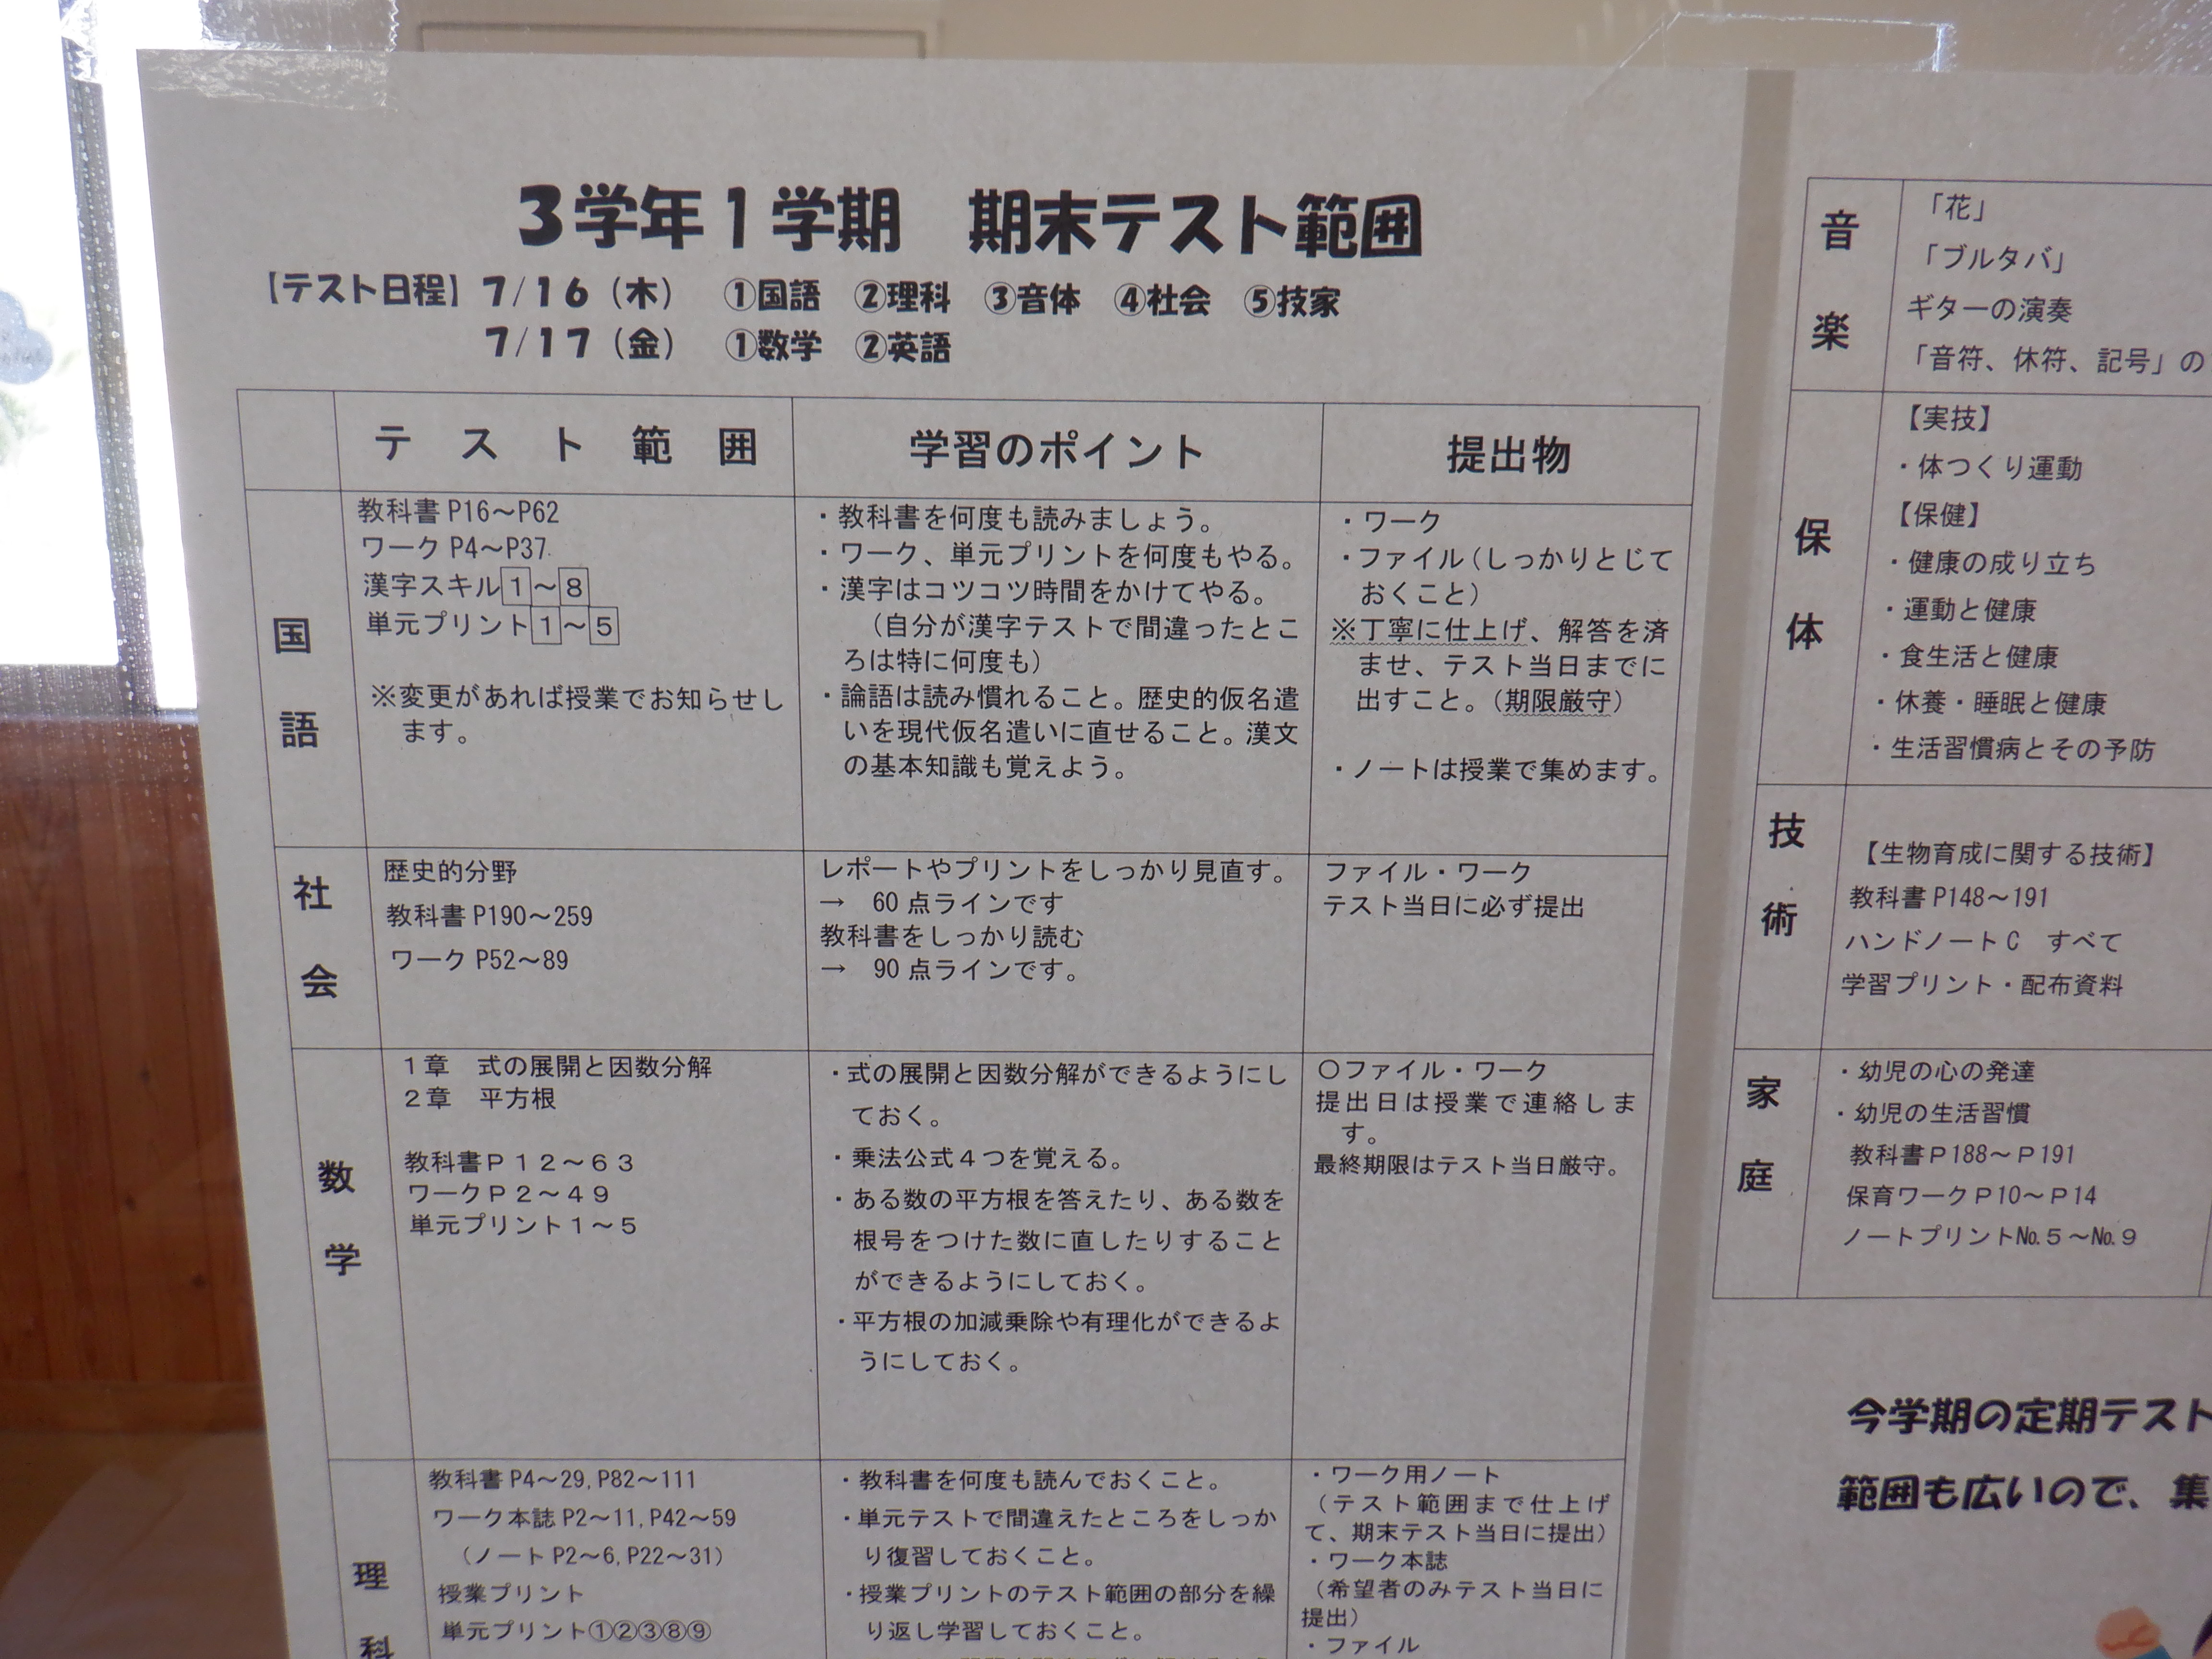 3学年1学期　期末テスト範囲
【テスト日程】7/16（木）　①国語　②理科　③音体　④社会　⑤技家
7/17（金）　①数学　②英語
テスト範囲
学習のポイント
提出物
国語
教科書 P16～P62
ワーク P4～P37
漢字スキル1～8
単元プリント1～5
※変更があれば授業でお知らせし
ます。
・教科書を何度も読みましょう。
・ワーク、単元プリントを何度もやる。
・漢字はコツコツ時間をかけてやる。
（自分が漢字テストで間違ったとこ
ろは特に何度も）
・論語は読み慣れること。歴史的仮名遣
いを現代仮名遣いに直せること。漢文
の基本知識も覚えよう。
・ワーク
・ファイル（しっかりとじて
おくこと）
※丁寧に仕上げ、解答を済
ませ、テスト当日までに
出すこと。（期限厳守）
・ノートは授業で集めます。
社会
歴史的分野
教科書 P190～259
ワーク P52～89
レポートやプリントをしっかり見直す。
→　60 点ラインです
教科書をしっかり読む
→　90 点ラインです。
ファイル・ワーク
テスト当日に必ず提出
数学
1章　式の展開と因数分解
2章　平方根
教科書Ｐ１２～６３
ワークＰ２～４９
単元プリント１～５
・式の展開と因数分解ができるようにし
ておく。
・乗法公式４つを覚える。
・ある数の平方根を答えたり、ある数を
根号をつけた数に直したりすること
ができるようにしておく。
・平方根の加減乗除や有理化ができるよ
うにしておく。
〇ファイル・ワーク
提出日は授業で連絡しま
す。
最終期限はテスト当日厳守。
理科
教科書 P4～29, P82～111
ワーク本誌 P2～11, P42～59
（ノート P2～6, P22～31）
授業プリント
単元プリント①②③⑧⑨
・教科書を何度も読んでおくこと。
・単元テストで間違えたところをしっか
り復習しておくこと。
・授業プリントのテスト範囲の部分を繰
り返し学習しておくこと。
・ワーク用ノート
（テスト範囲まで仕上げ
て、期末テスト当日に提出）
・ワーク本誌
（希望者のみテスト当日に
提出）
・ファイル
音楽
「花」
「ブルタバ」
ギターの演奏
「音符、休符、記号」の
保体
【実技】
・体つくり運動
【保健】
・健康の成り立ち
・運動と健康
・食生活と健康
・休養・睡眠と健康
・生活習慣病とその予防
技術
【生物育成に関する技術】
教科書 P148～191
ハンドノート C　すべて
学習プリント・配布資料
家庭
・幼児の心の発達
・幼児の生活習慣
教科書Ｐ188～Ｐ191
保育ワークＰ10～Ｐ14
ノートプリント№５～№９
今学期の定期テスト
範囲も広いので、集